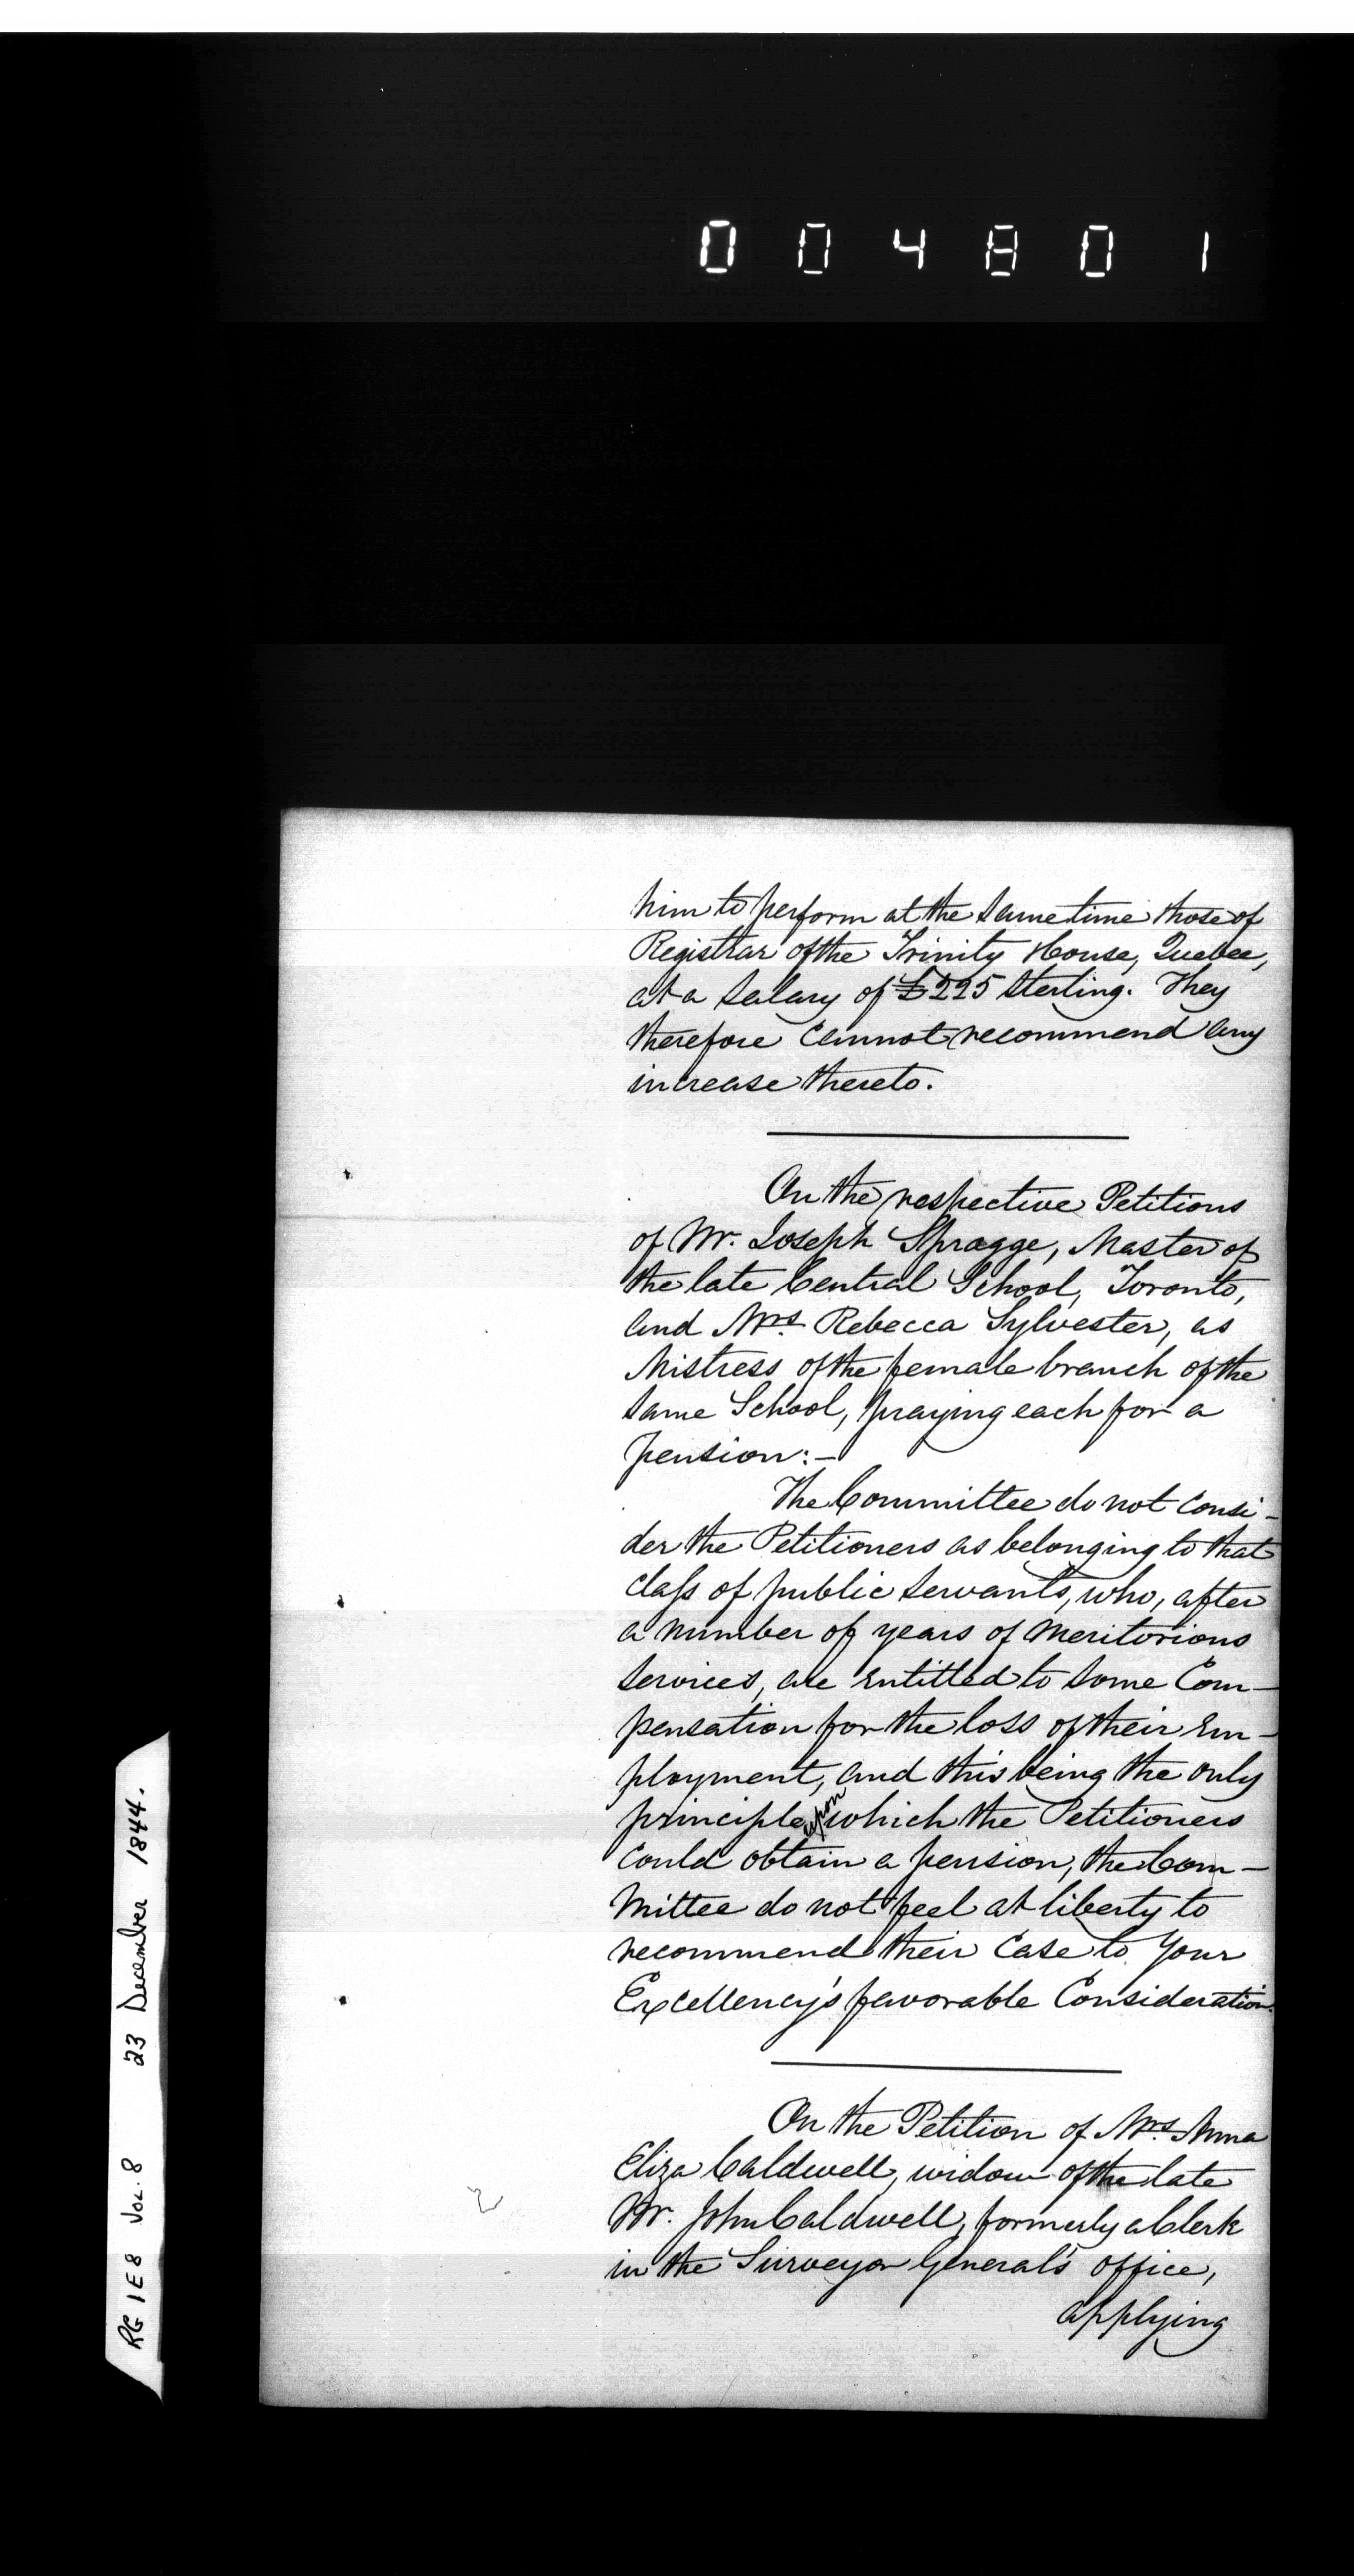 004801
him to perform at the same time those of
Registrar of the Trinity House, Quebec,
at a salary of £225 Sterling. They
therefore cannot recommend any
increase thereto.
On the respective Petitions
of Mr. Joseph Spragge, Master of
the late Central School, Toronto,
and Mrs. Rebecca Sylvester, as
Mistress of the female branch of the
same School, praying each for a
pension:—
The Committee do not consi-
der the Petitioners as belonging to that
class of public servants, who, after
a number of years of meritorious
services, are entitled to some Com-
pensation for the loss of their em-
ployment, and this being the only
principle upon which the Petitioners
could obtain a pension, the Com-
mittee do not feel at liberty to
recommend their case to Your
Excellency's favorable Consideration.
On the Petition of Mrs. Anna
Eliza Caldwell, widow of the late
Mr. John Caldwell, formerly a Clerk
in the Surveyor General's office,
applying
RG 1 E 8 Vol. 8 23 December 1844.